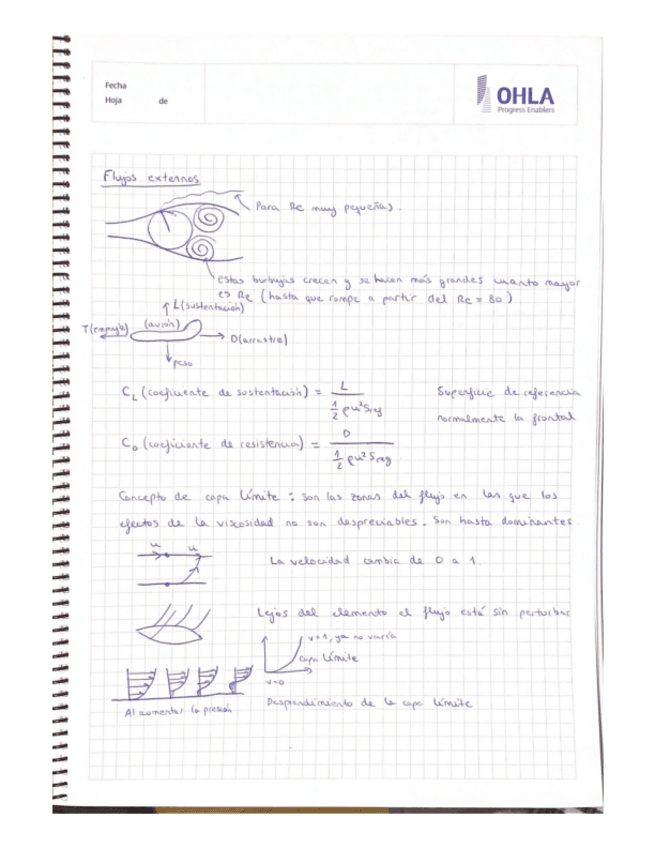 Fecha
Hoja de
OHLA
Progress Enablers
Flujos externos
Para Re muy pequeñas.
estas burbujas crecen y se hacen más grandes cuanto mayor
es Re (hasta que rompe a partir del Re = 80)
L (sustentación)
T (empuje)
(avión)
D (arrastre)
peso
CL (coeficiente de sustentación) = L / 1/2 ρu²Sref
Superficie de referencia
normalmente la frontal
CD (coeficiente de resistencia) = D / 1/2 ρu²Sref
Concepto de capa límite: son las zonas del flujo en las que los
efectos de la viscosidad no son despreciables. Son hasta dominantes
u u
La velocidad cambia de 0 a 1.
Lejos del elemento el flujo está sin perturbar
v=1, ya no varía
capa límite
v=0
Al aumentar la presión
Desprendimiento de la capa límite